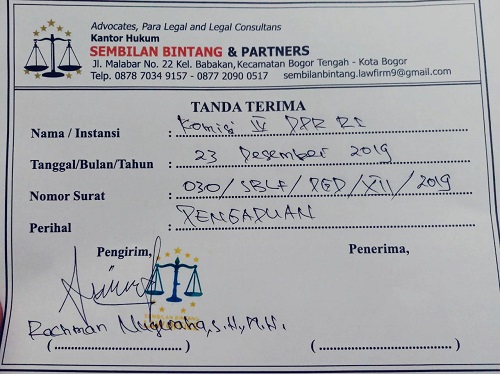 Advocates, Para Legal and Legal Consultans
Kantor Hukum
SEMBILAN BINTANG & PARTNERS
Jl. Malabar No. 22 Kel. Babakan, Kecamatan Bogor Tengah - Kota Bogor
Telp. 0878 7034 9157 - 0877 2090 0517 sembilanbintang.lawfirm9@gmail.com
TANDA TERIMA
Nama / Instansi : Komisi IV DPR RI
Tanggal/Bulan/Tahun : 23 Desember 2019
Nomor Surat : 030/SBLF/PGD/XII/2019
Perihal : PENGADUAN
Pengirim, Penerima,
SEMBILAN BINTANG
Rachman Nugraha, S.H., M.H.
(........................) (........................)